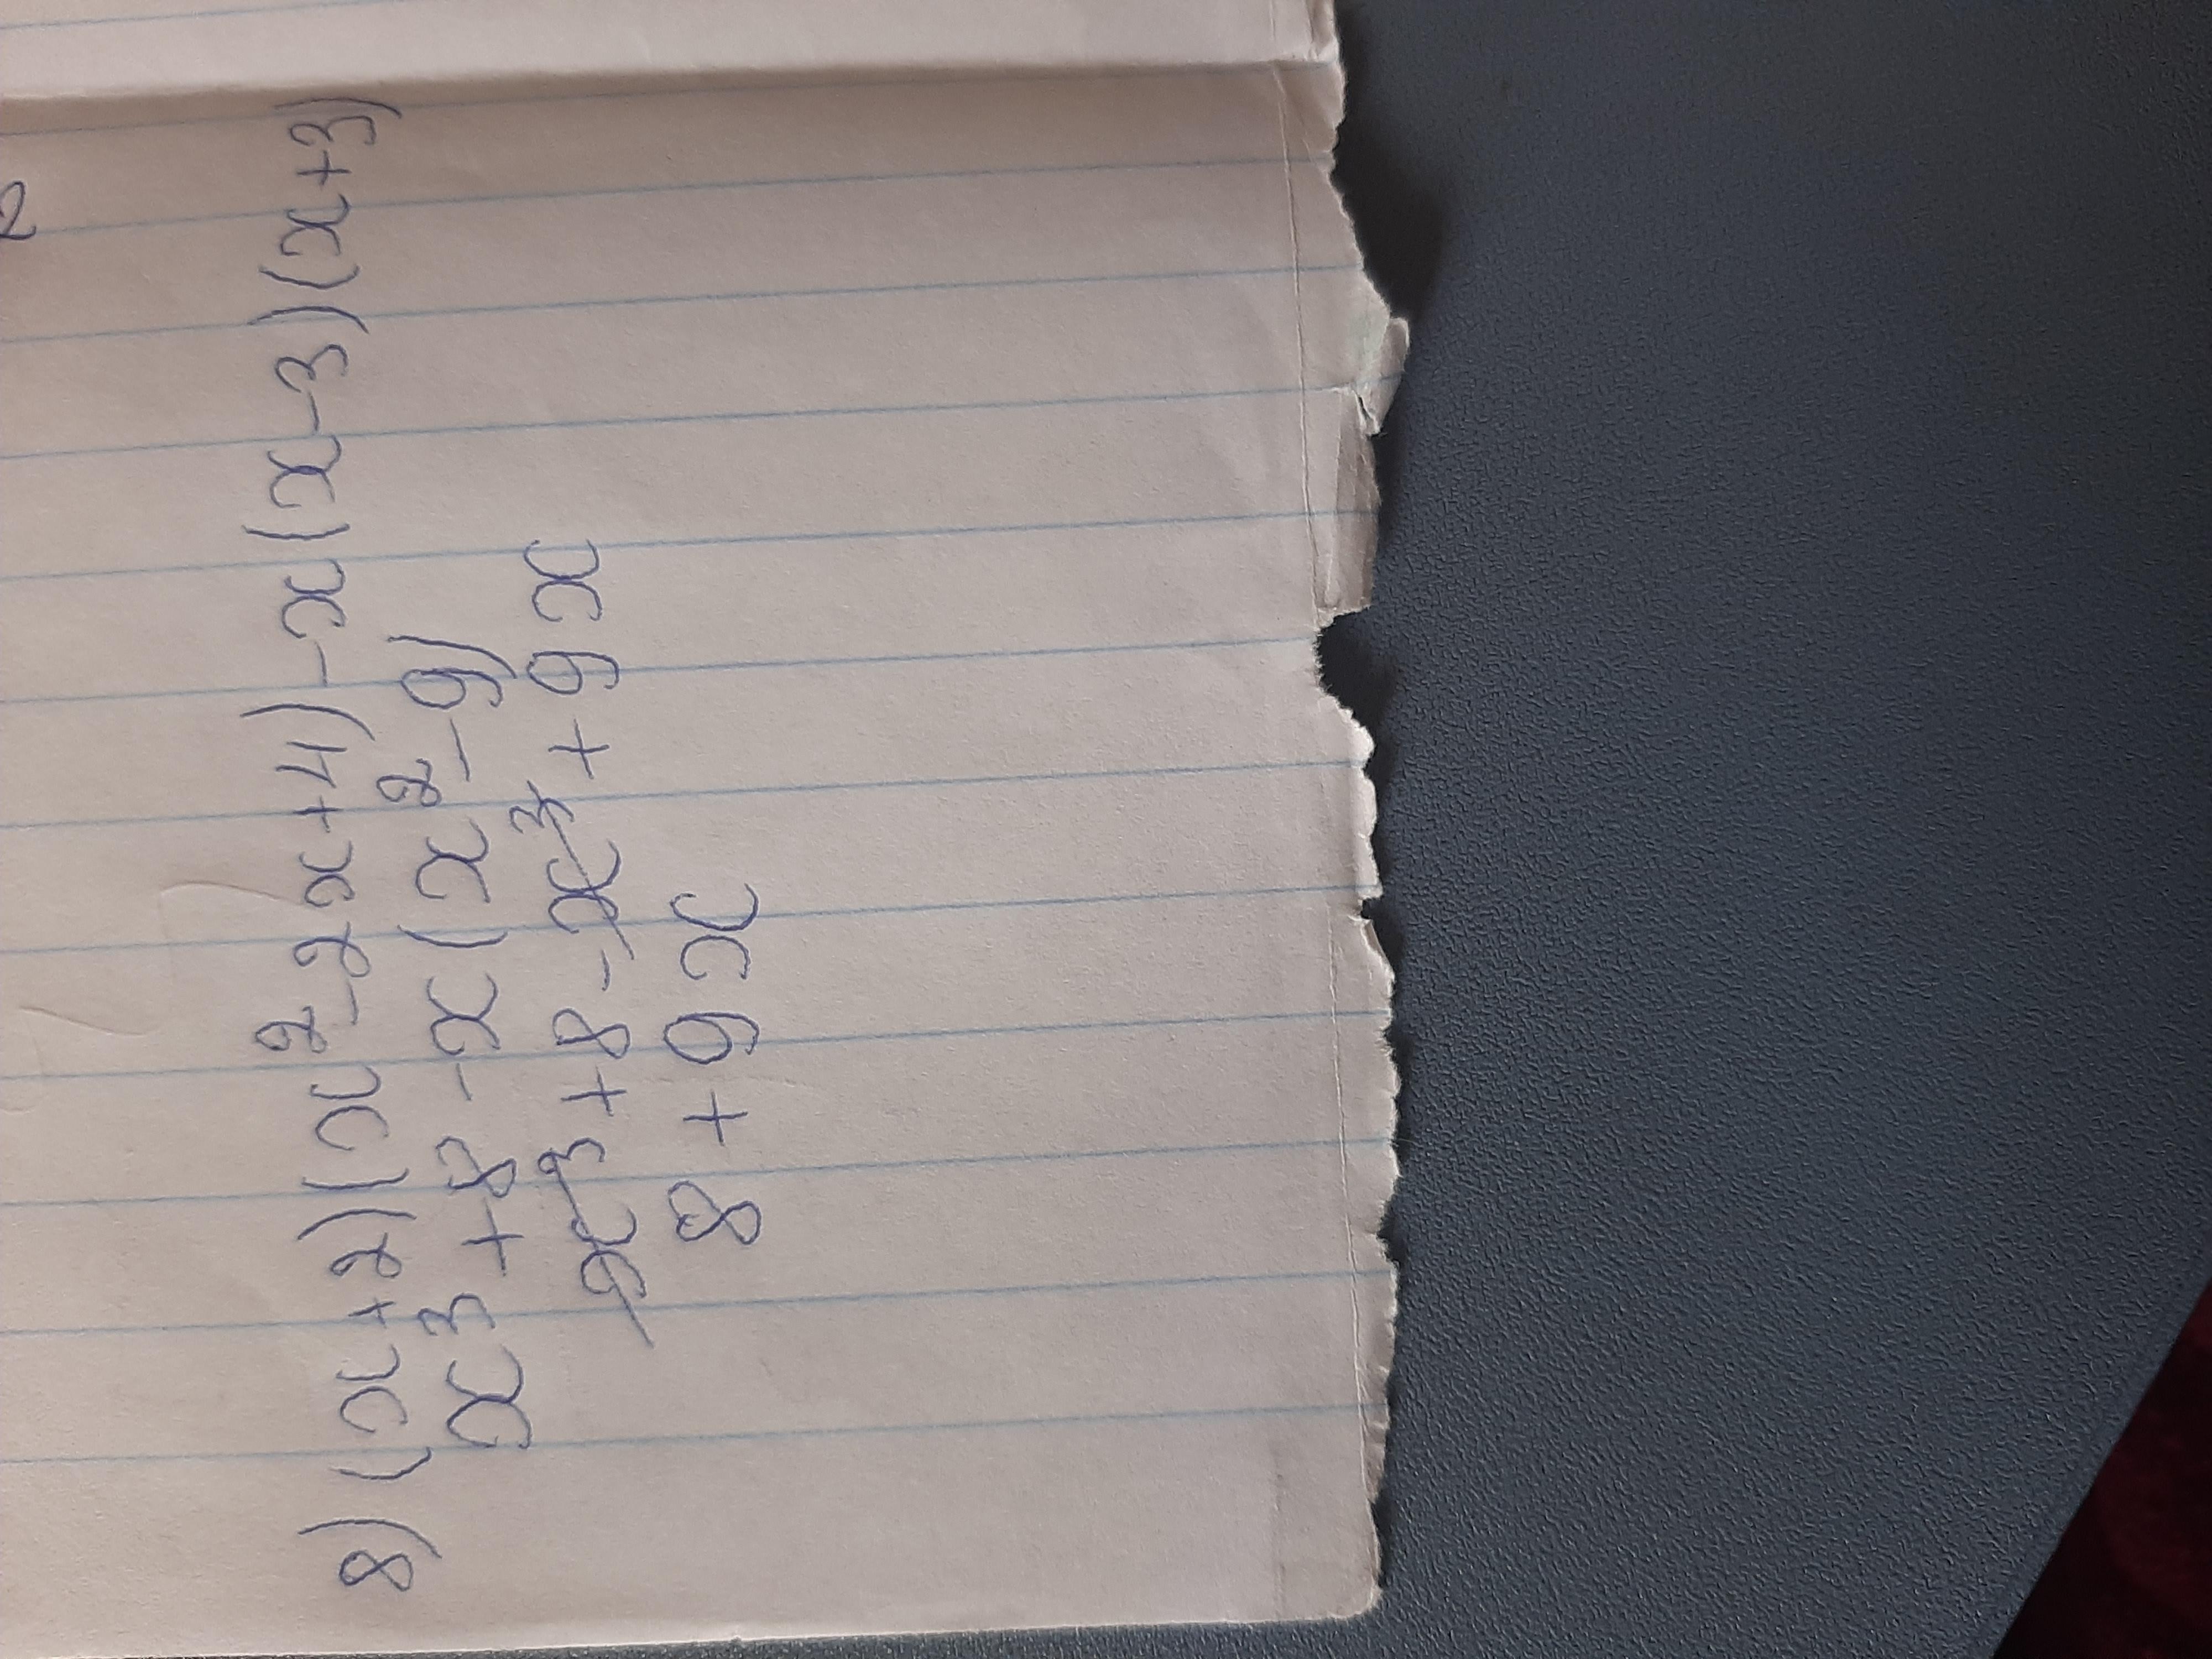 8) (x+2)(x²-2x+4)-x(x-3)(x+3)
x³+8-x(x²-9)
x³+8-x³+9x
8+9x